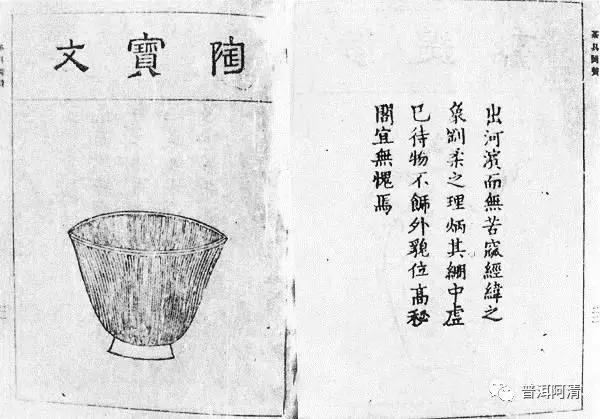 茶具圖贊
出河濱而無苦窳經緯之
象剛柔之理炳其綳中虛
己待物不飾外貌位高秘
閣宜無愧焉
陶寶文
普洱阿清